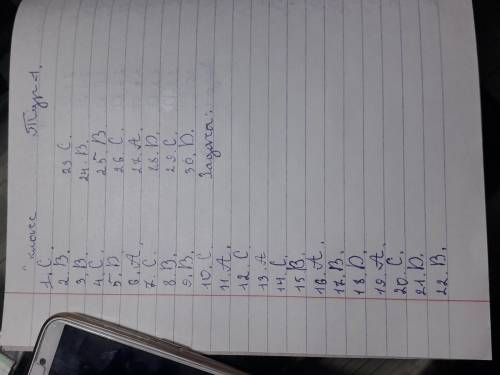 класс Тур 1.
1. C.
2. B.
3. B.
4. C.
5. D
6. A.
7. C.
8. B.
9. B.
10. C.
11. A.
12. C
13. A
14. C.
15. B.
16. A.
17. B.
18. D.
19. A.
20. C.
21. D.
22. B.
23 C.
24. B.
25. B.
26. C.
27. A.
28. D.
29. C.
30. D.
Задачи: